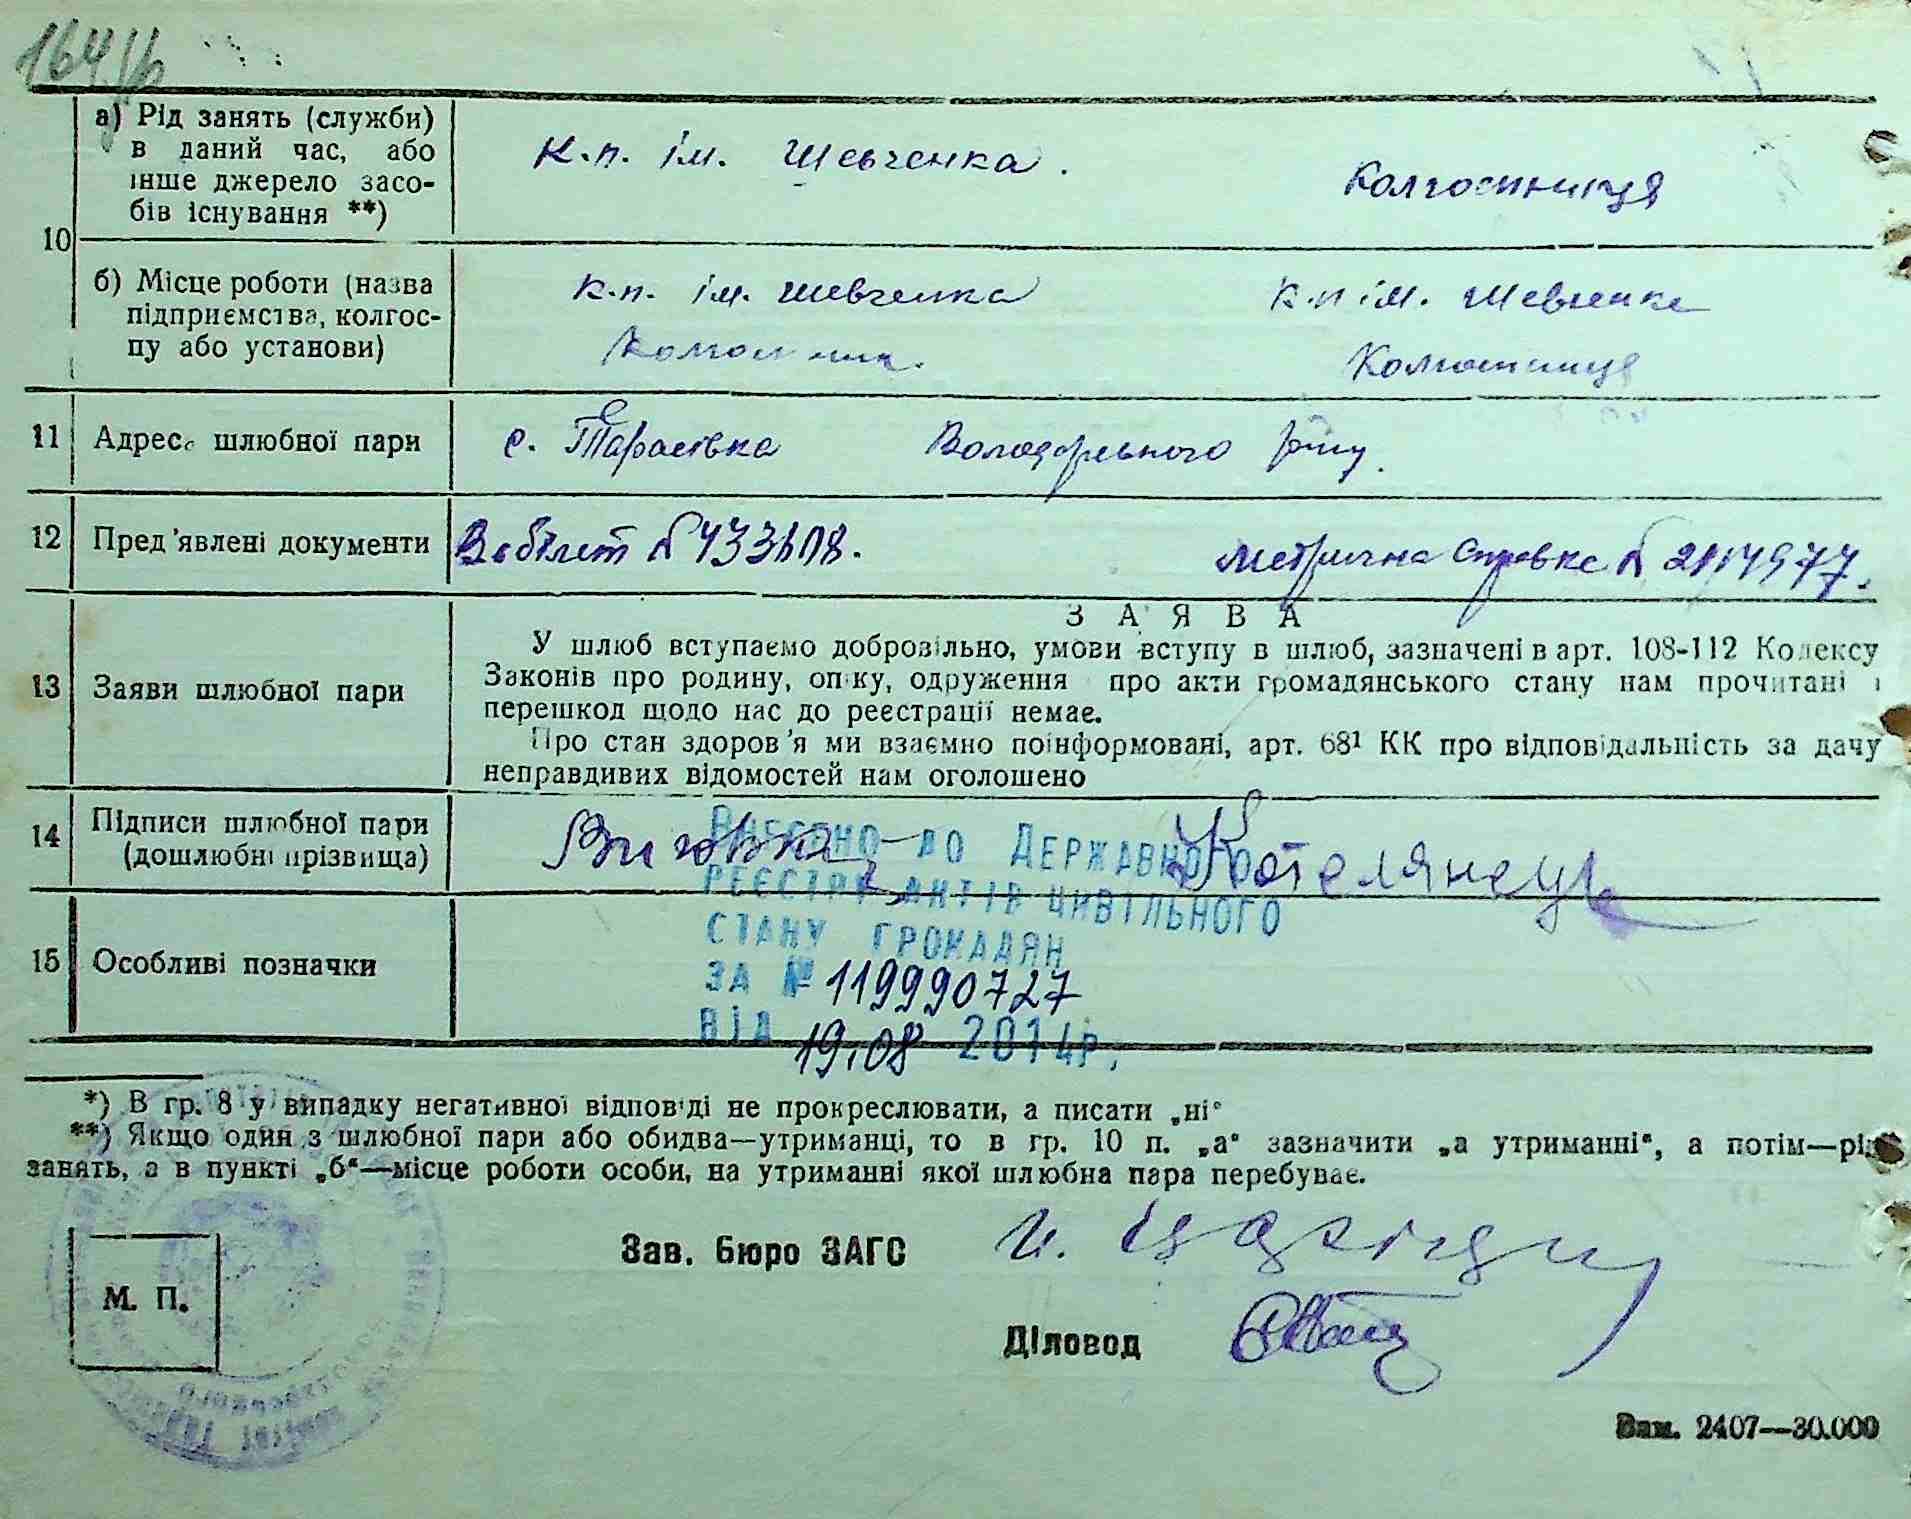 164
а) Рід занять (служби)
в даний час, або
інше джерело засо-
бів існування **)
к.п. ім. Шевченка.
Колгоспниця
10
б) Місце роботи (назва
підприємства, колгос-
пу або установи)
к.п. ім. Шевченка
к.п ім. Шевченка
Колгоспник.
Колгоспниця
11 Адреса шлюбної пари
с. Тарасівка Володарського р-ну.
12 Пред'явлені документи
В/білет №
метрична справка №
З А Я В А
У шлюб вступаємо добровільно, умови вступу в шлюб, зазначені в арт. 108-112 Кодексу
Законів про родину, опіку, одруження про акти громадянського стану нам прочитані і
перешкод щодо нас до реєстрації немає.
Про стан здоров'я ми взаємно поінформовані, арт. 68¹ КК про відповідальність за дачу
неправдивих відомостей нам оголошено
13 Заяви шлюбної пари
14 Підписи шлюбної пари
(дошлюбні прізвища)
Котелянець
Внесено до Державного
реєстру актів цивільного
стану громадян
за № 119990727
від 19.08 2014р.
15 Особливі позначки
*) В гр. 8 у випадку негативної відповіді не прокреслювати, а писати „ні"
**) Якщо один з шлюбної пари або обидва—утриманці, то в гр. 10 п. „а" зазначити „а утриманні", а потім—рід
занять, а в пункті „б"—місце роботи особи, на утриманні якої шлюбна пара перебуває.
Зав. Бюро ЗАГС
М. П.
Діловод
Зам. 2407—30.000